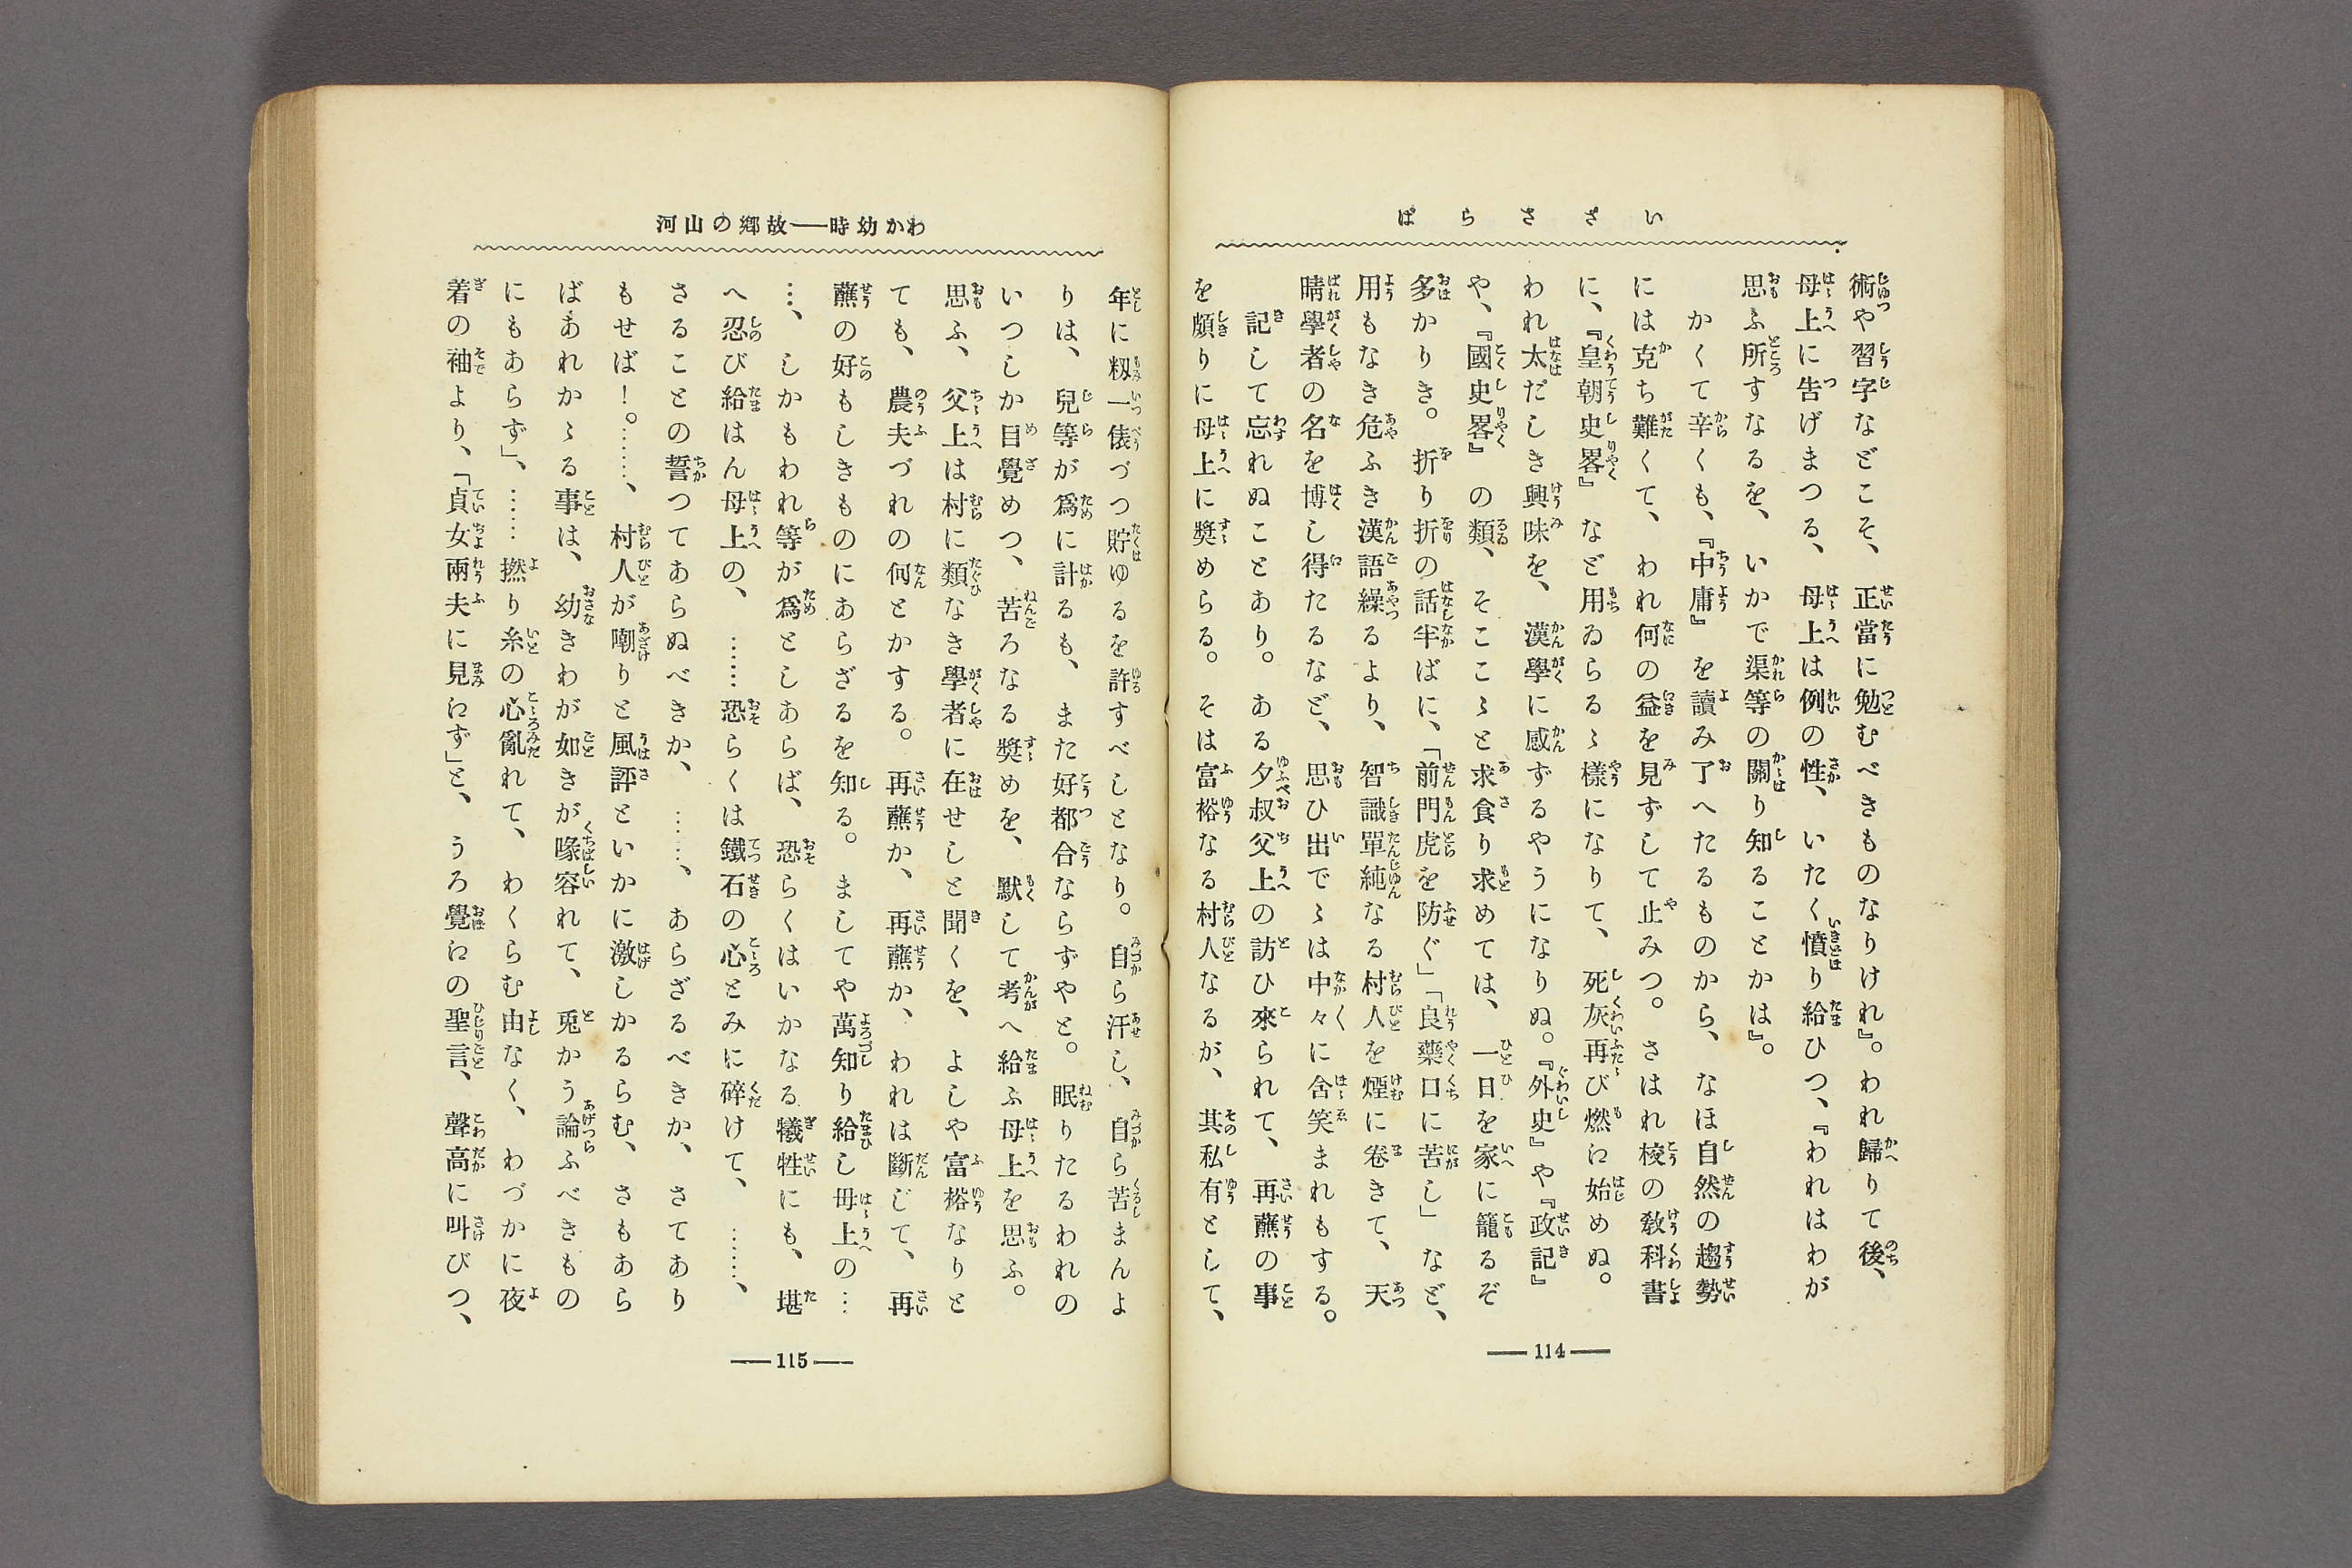 いざさらば
術や習字などこそ、正當に勉むべきものなりけれ』。われ歸りて後、
母上に吿げまつる、母上は例の性、いたく憤り給ひつ、『われはわが
思ふ所すなるを、いかで渠等の關り知ることかは』。
かくて辛くも、『中庸』を讀み了へたるものから、なほ自然の趨勢
には克ち難くて、われ何の益を見ずして止みつ。さはれ校の敎科書
に、『皇朝史畧』など用ゐらるゝ樣になりて、死灰再び燃に始めぬ。
われ太だしき興味を、漢學に感ずるやうになりぬ。『外史』や『政記』
や、『國史畧』の類、そここゝと求食り求めては、一日を家に籠るぞ
多かりき。折り折の話半ばに、「前門虎を防ぐ」「良藥口に苦し」など、
用もなき危ふき漢語繰るより、智識單純なる村人を煙に卷きて、天
晴學者の名を博し得たるなど、思ひ出でゝは中々に含笑まれもする。
記して忘れぬことあり。ある夕叔父上の訪ひ來られて、再蘸の事
を頗りに母上に奬めらる。そは富裕なる村人なるが、其私有として、
114
わか幼時――故鄕の山河
年に籾一俵づつ貯ゆるを許すべしとなり。自ら汗し、自ら苦まんよ
りは、兒等が爲に計るも、また好都合ならずやと。眠りたるわれの
いつしか目覺めつ、苦ろなる奬めを、默して考へ給ふ母上を思ふ。
思ふ、父上は村に類なき學者に在せしと聞くを、よしや富裕なりと
ても、農夫づれの何とかする。再蘸か、再蘸か、われは斷じて、再
蘸の好もしきものにあらざるを知る。ましてや萬知り給し母上の…
…、しかもわれ等が爲としあらば、恐らくはいかなる犧牲にも、堪
へ忍び給はん母上の、……恐らくは鐵石の心とみに碎けて、……、
さることの誓つてあらぬべきか、……、あらざるべきか、さてあり
もせば！。……、村人が嘲りと風評といかに激しかるらむ、さもあら
ばあれかゝる事は、幼きわが如きが喙容れて、兎かう論ふべきもの
にもあらず」、……撚り糸の心亂れて、わくらむ由なく、わづかに夜
着の袖より、「貞女兩夫に見にず」と、うろ覺にの聖言、聲高に叫びつ、
115